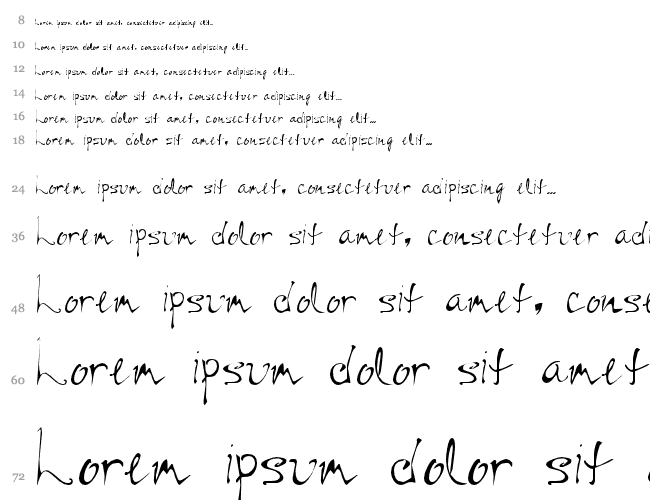 8 Lorem ipsum dolor sit amet, consectetver adipiscing elit...
10 Lorem ipsum dolor sit amet, consectetver adipiscing elit...
12 Lorem ipsum dolor sit amet, consectetver adipiscing elit...
14 Lorem ipsum dolor sit amet, consectetver adipiscing elit...
16 Lorem ipsum dolor sit amet, consectetver adipiscing elit...
18 Lorem ipsum dolor sit amet, consectetver adipiscing elit...
24 Lorem ipsum dolor sit amet, consectetver adipiscing elit...
36 Lorem ipsum dolor sit amet, consectetver adi
48 Lorem ipsum dolor sit amet, conse
60 Lorem ipsum dolor sit amet
72 Lorem ipsum dolor sit